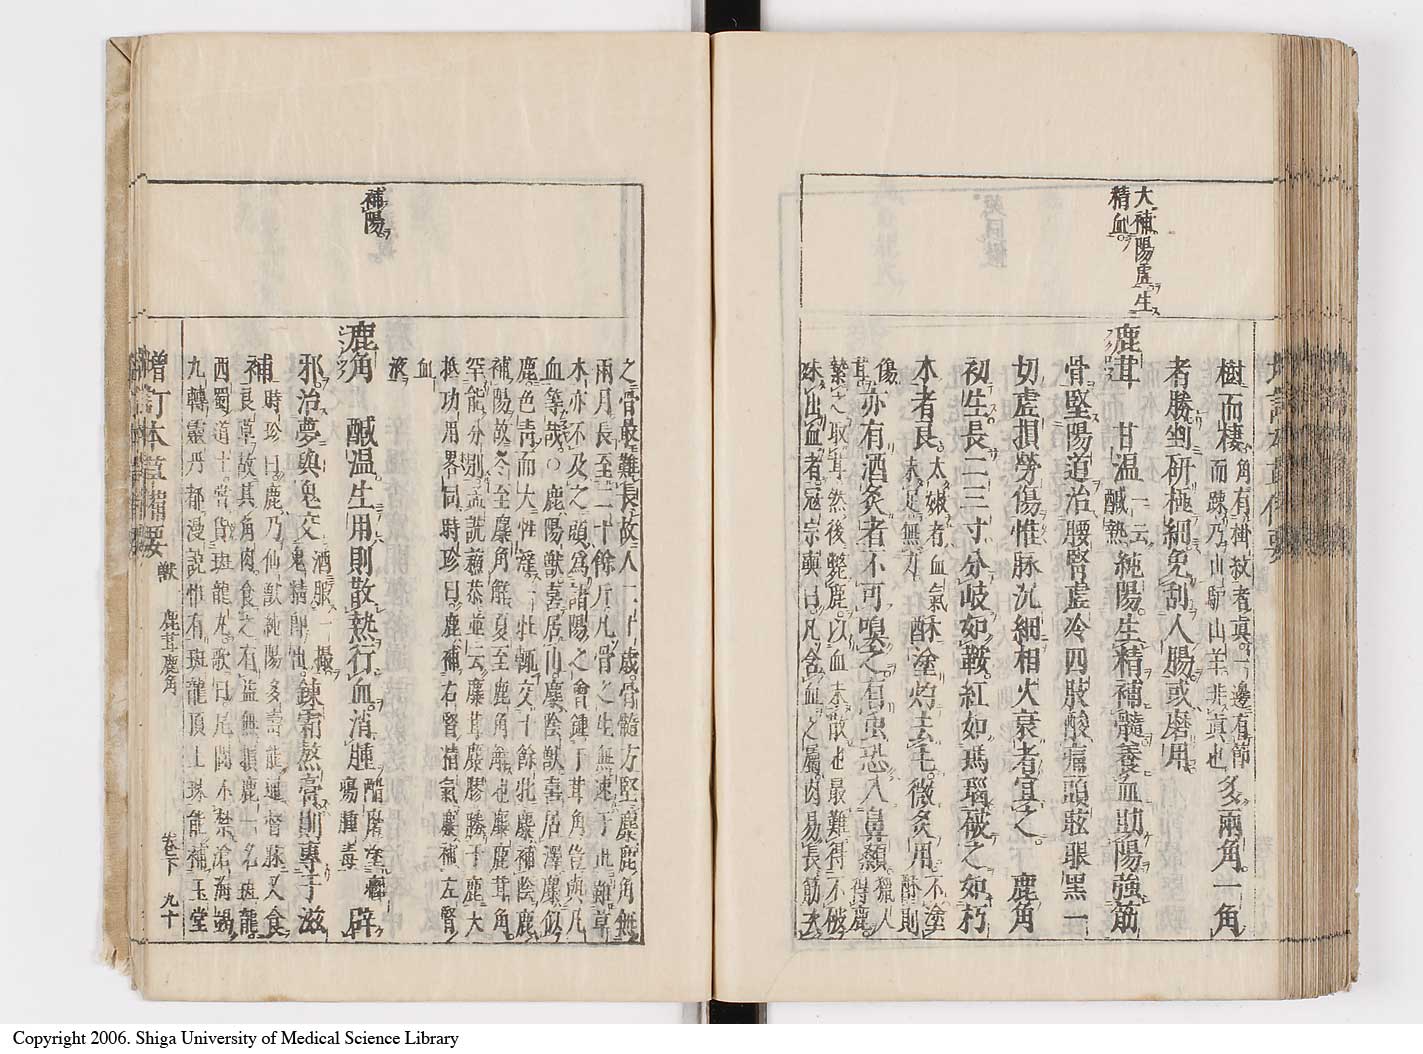 大補陽虛生
精血
樹而棲角有掛紋者眞一邊有節
而疎乃山驢山羊非眞也多兩角一角
者勝剉研極細免刮人腸或磨用
鹿茸 甘温一云鹹熱純陽生精補髓養血助陽強筋
骨堅陽道治腰腎虛冷四肢酸痛頭眩眼黑一
切虛損勞傷惟脉沉細相火衰者宜之 鹿角
初生長二三寸分岐如鞍紅如瑪瑙破之如朽
木者良太嫩者血氣未足無力酥塗灼去毛微炙用不塗酥則
傷茸亦有酒炙者不可嗅之有虫恐入鼻顙獵人得鹿
縶之取茸然後斃鹿以血未散也最難得不破
味出血者宼宗奭曰凡含血之屬肉易長筋次
之骨最難長故人二十歲骨髓方堅麋鹿角無
兩月長至二十餘斤凡骨之生無速于此雖草
木亦不及之頭為諸陽之會鍾于茸角豈與凡
血等哉○鹿陽獸喜居山麋陰獸喜居澤麋似
鹿色青而大性淫一牡輒交十餘牝麋補陰鹿
補陽故冬至麋角解夏至鹿角解也麋鹿茸角
罕能分別孟詵蘓恭並云麋茸麋膠勝于鹿大
抵功用畧同時珍曰鹿補右腎精氣麋補左腎
血
液
補陽
鹿角 鹹温生用則散熱行血消腫醋磨塗癰瘍腫毒辟
邪治夢與鬼交酒服一撮鬼精即出錬霜熬膏則專于滋
補時珍曰鹿乃仙獸純陽多壽能通督脉又食
良草故其角肉食之有益無損鹿一名斑龍
西蜀道士嘗貨斑龍丸歌曰尾閭不禁滄海竭
九轉靈丹都漫說惟有斑龍頂上珠能補玉堂
增訂本草備要 獸 鹿茸鹿角 卷下 九十
Copyright 2006. Shiga University of Medical Science Library